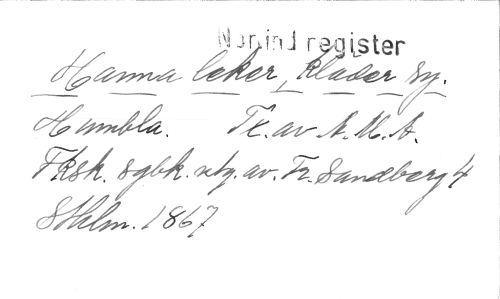 Nor ind register
Hanna leker, kläder sy.
Humbla. Tx. av A. M. A.
Fksk. sgbk. utg. av. Fr. Sandberg 4
Sthlm. 1867